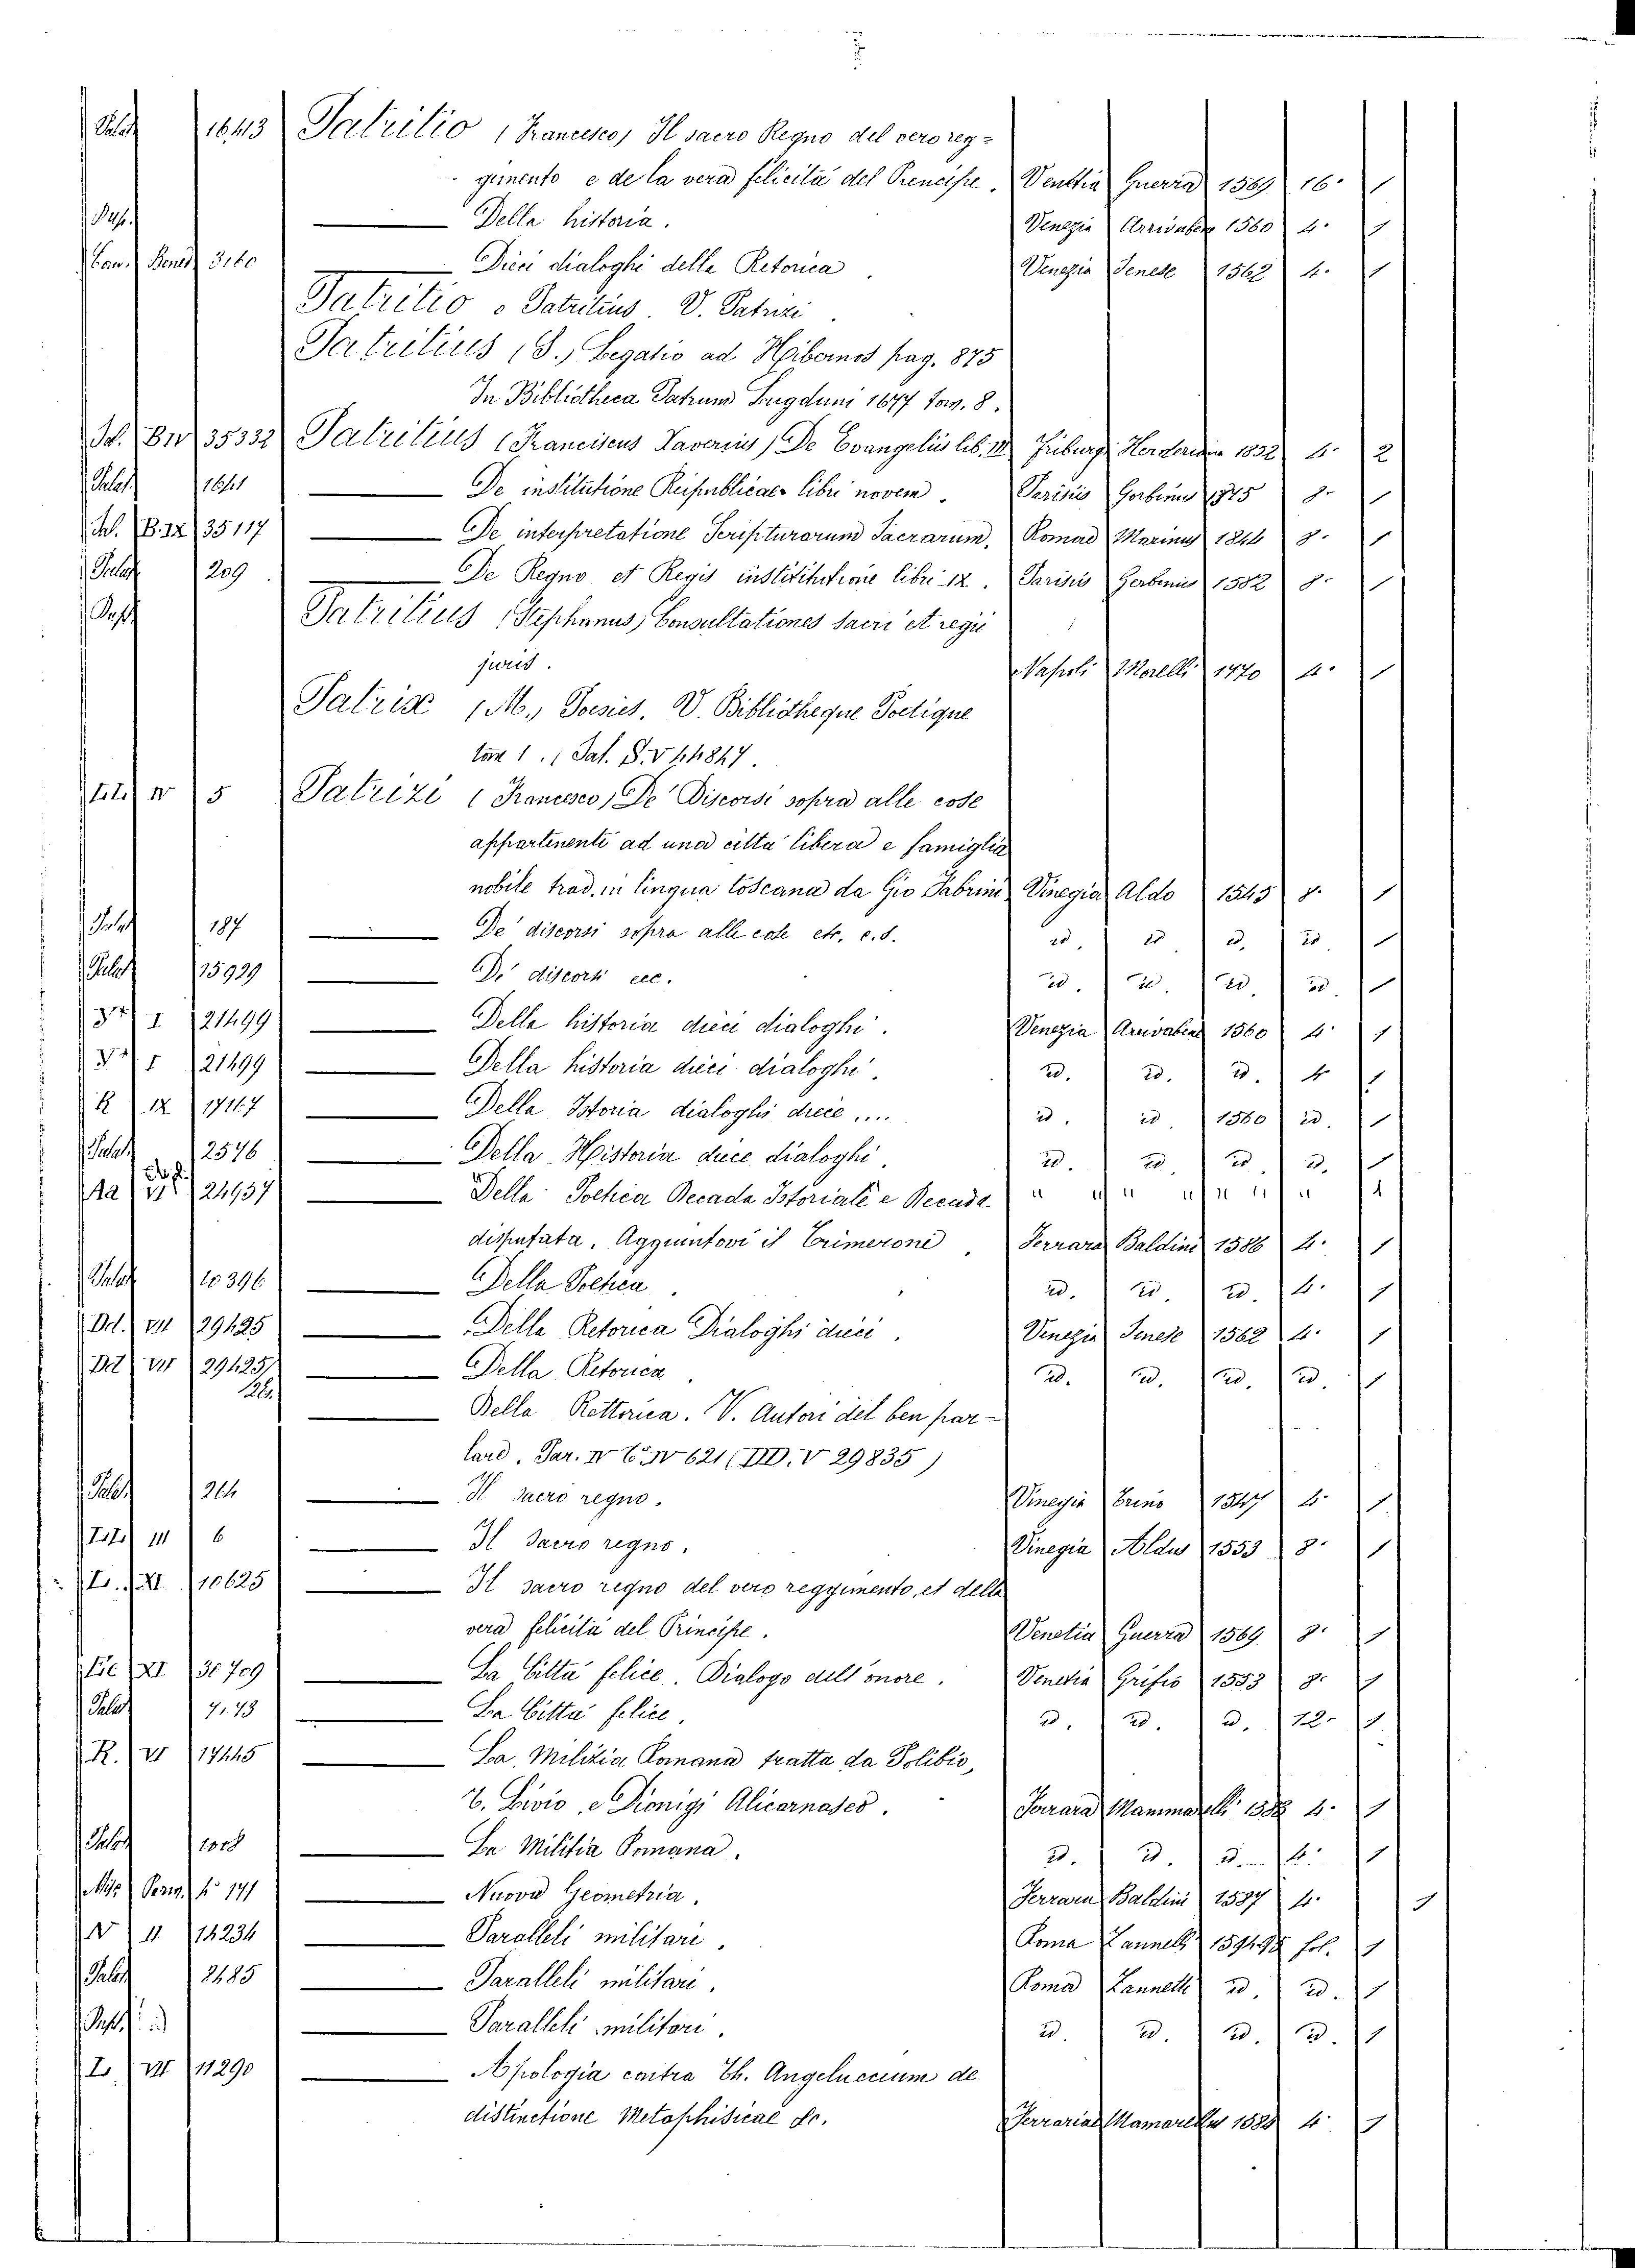 Palat 16413 Patritio (Francesco) Il sacro Regno del vero reg=
gimento e de la vera felicità del Prencipe. Venetia Guerra 1569 16° 1
——— Della historia. Venezia Arrivabene 1560 4° 1
Bened 3160 ——— Dieci dialoghi della Retorica. Venezia Senese 1562 4° 1
Patritio o Patritius. V. Patrizi.
Patritius (S.) Legatio ad Hibernos pag. 875
In Bibliotheca Patrum Lugduni 1677 tom. 8.
35332 Patritius (Franciscus Xaverius) De Evangeliis lib. III Friburgi 1852 4° 2
Palat ——— De institutione Reipublicae libri novem. Parisiis 8° 1
B. IX 35117 ——— De interpretatione Scripturarum Sacrarum. Romae Marinus 1844 8° 1
Palat 209 ——— De Regno et Regis institutione libri IX. Parisiis Gorbinus 1582 8° 1
Patritius (Stephanus) Consultationes sacri et regii
juris. Napoli Morelli 1770 4° 1
Patrix (M.) Poesies. V. Bibliotheque Poetique
tom 1. (Sal. S. V 44847.
IV 5 Patrizi (Francesco) De' Discorsi sopra alle cose
appartenenti ad una città libera e famiglia
nobile trad. in lingua toscana da Gio Fabrini Vinegia Aldo 1545 8° 1
Palat 187 ——— De' discorsi sopra alle cose etc. c. s. id. id. id. id. 1
Palat 15929 ——— De' discorsi ecc. id. id. id. id. 1
I 21499 ——— Della historia dieci dialoghi. Venezia Arrivabene 1560 4° 1
I 21499 ——— Della historia dieci dialoghi. id. id. id. 4° 1
R IX 17167 ——— Della Istoria dialoghi diece .... id. id. 1560 id. 1
Palat 2576 ——— Della Historia diece dialoghi. id. id. id. id. 1
Aa VI 24957 ——— Della Poetica Decada Istoriale e Decada " " " " " " " 1
disputata. Aggiuntovi il Trimerone. Ferrara Baldini 1586 4° 1
Palat 10396 ——— Della Poetica. id. id. id. 4° 1
Dd. VII 29425 ——— Della Retorica Dialoghi dieci. Venezia Senese 1562 4° 1
Dd VII 29425 ——— Della Retorica. id. id. id. id. 1
——— Della Rettorica. V. Autori del ben par=
lare. Par. IV T° IV 621 (DD. V 29835)
Palat 264 ——— Il sacro regno. Vinegia Trino 1547 8° 1
III 6 ——— Il Sacro regno. Vinegia Aldus 1553 8° 1
L. XI 10625 ——— Il sacro regno del vero reggimento, et della
vera felicità del Principe. Venetia Guerra 1569 8° 1
XI 30709 ——— La Città felice. Dialogo dell'onore. Venetia Grifio 1553 8° 1
Palat ——— La Città felice. id. id. id. 12° 1
R. VI 17445 ——— La Milizia Romana tratta da Polibio,
T. Livio, e Dionigi Alicarnaseo. Ferrara Mammarelli 1583 4° 1
Palat ——— La Militia Romana. id. id. id. 4° 1
——— Nuova Geometria. Ferrara Baldini 1587 4° 1
V II 14234 ——— Paralleli militari. Roma Zannetti 1594.95 fol. 1
Palat 2485 ——— Paralleli militari. Roma Zannetti id. id. 1
——— Paralleli militari. id. id. id. id. 1
L. VII 11290 ——— Apologia contra Th. Angeluccium de
distinctione Metaphisicae &c. Ferrariae Mamarellus 1584 4° 1